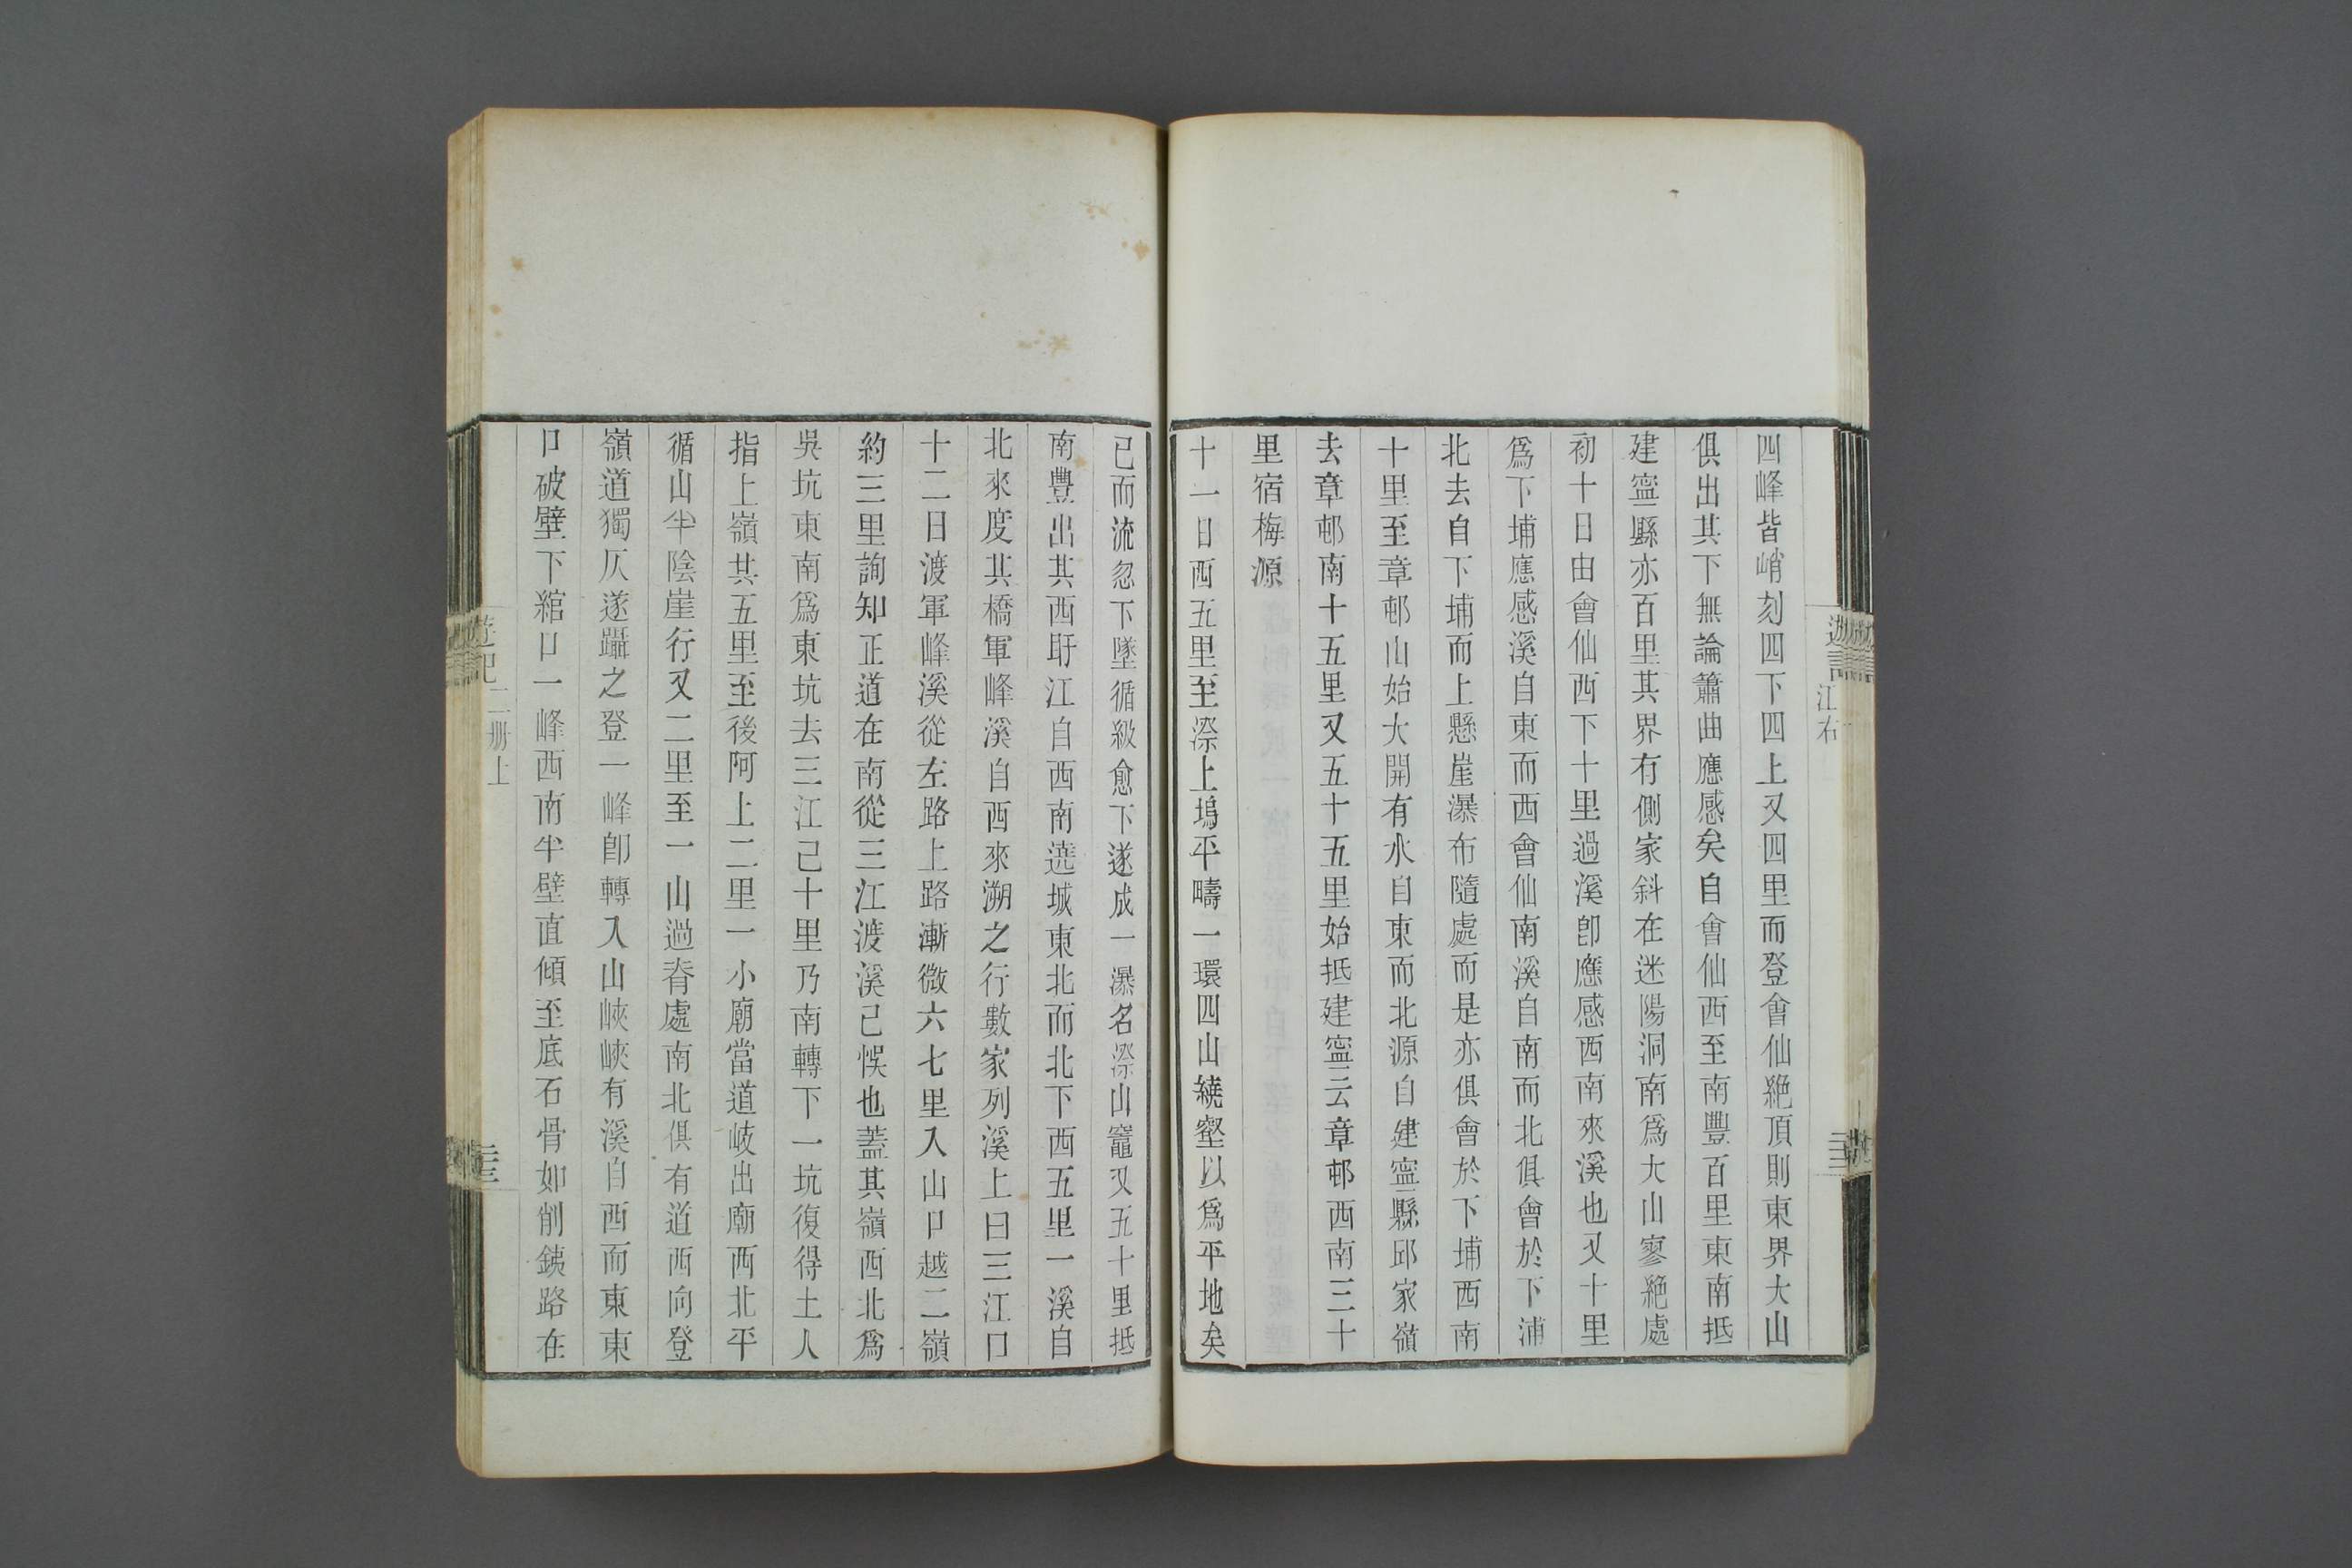 四峰皆峭刻四下四上又四里而登會仙絕頂則東界大山
俱出其下無論簫曲應感矣自會仙西至南豐百里東南抵
建寧縣亦百里其界有側家斜在迷陽洞南爲大山寥絕處
初十日由會仙西下十里過溪卽應感西南來溪也又十里
爲下埔應感溪自東而西會仙南溪自南而北俱會於下浦
北去自下埔而上懸崖瀑布隨處而是亦俱會於下埔西南
十里至章邨山始大開有水自東而北源自建寧縣邱家嶺
去章邨南十五里又五十五里始抵建寧云章邨西南三十
里宿梅源
十一日西五里至漈上塢平疇一環四山繞壑以爲平地矣
已而流忽下墜循級愈下遂成一瀑名漈山竈又五十里抵
南豐出其西盱江自西南遶城東北而北下西五里一溪自
北來度其橋軍峰溪自西來溯之行數家列溪上曰三江口
十二日渡軍峰溪從左路上路漸微六七里入山口越二嶺
約三里詢知正道在南從三江渡溪已悞也蓋其嶺西北爲
吳坑東南爲東坑去三江已十里乃南轉下一坑復得土人
指上嶺其五里至後阿上二里一小廟當道岐出廟西北平
循山半陰崖行又二里至一山過脊處南北俱有道西向登
嶺道獨仄遂躡之登一峰卽轉入山峽峽有溪自西而東東
口破壁下綰口一峰西南半壁直傾至底石骨如削銕路在
江右
遊記
二册上